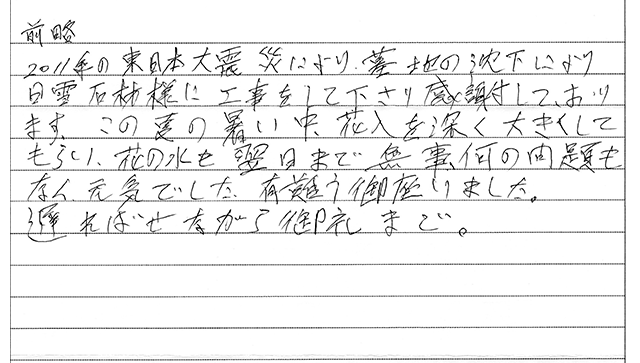 前略
2011年の東日本大震災により、墓地の沈下により
白雪石材様に工事をして下さり感謝しております。
この夏の暑い中、花入を深く大きくして
もらい、花の水も翌日まで無事、何の問題も
なく元気でした。有難う御座いました。
遅ればせながら御礼まで。